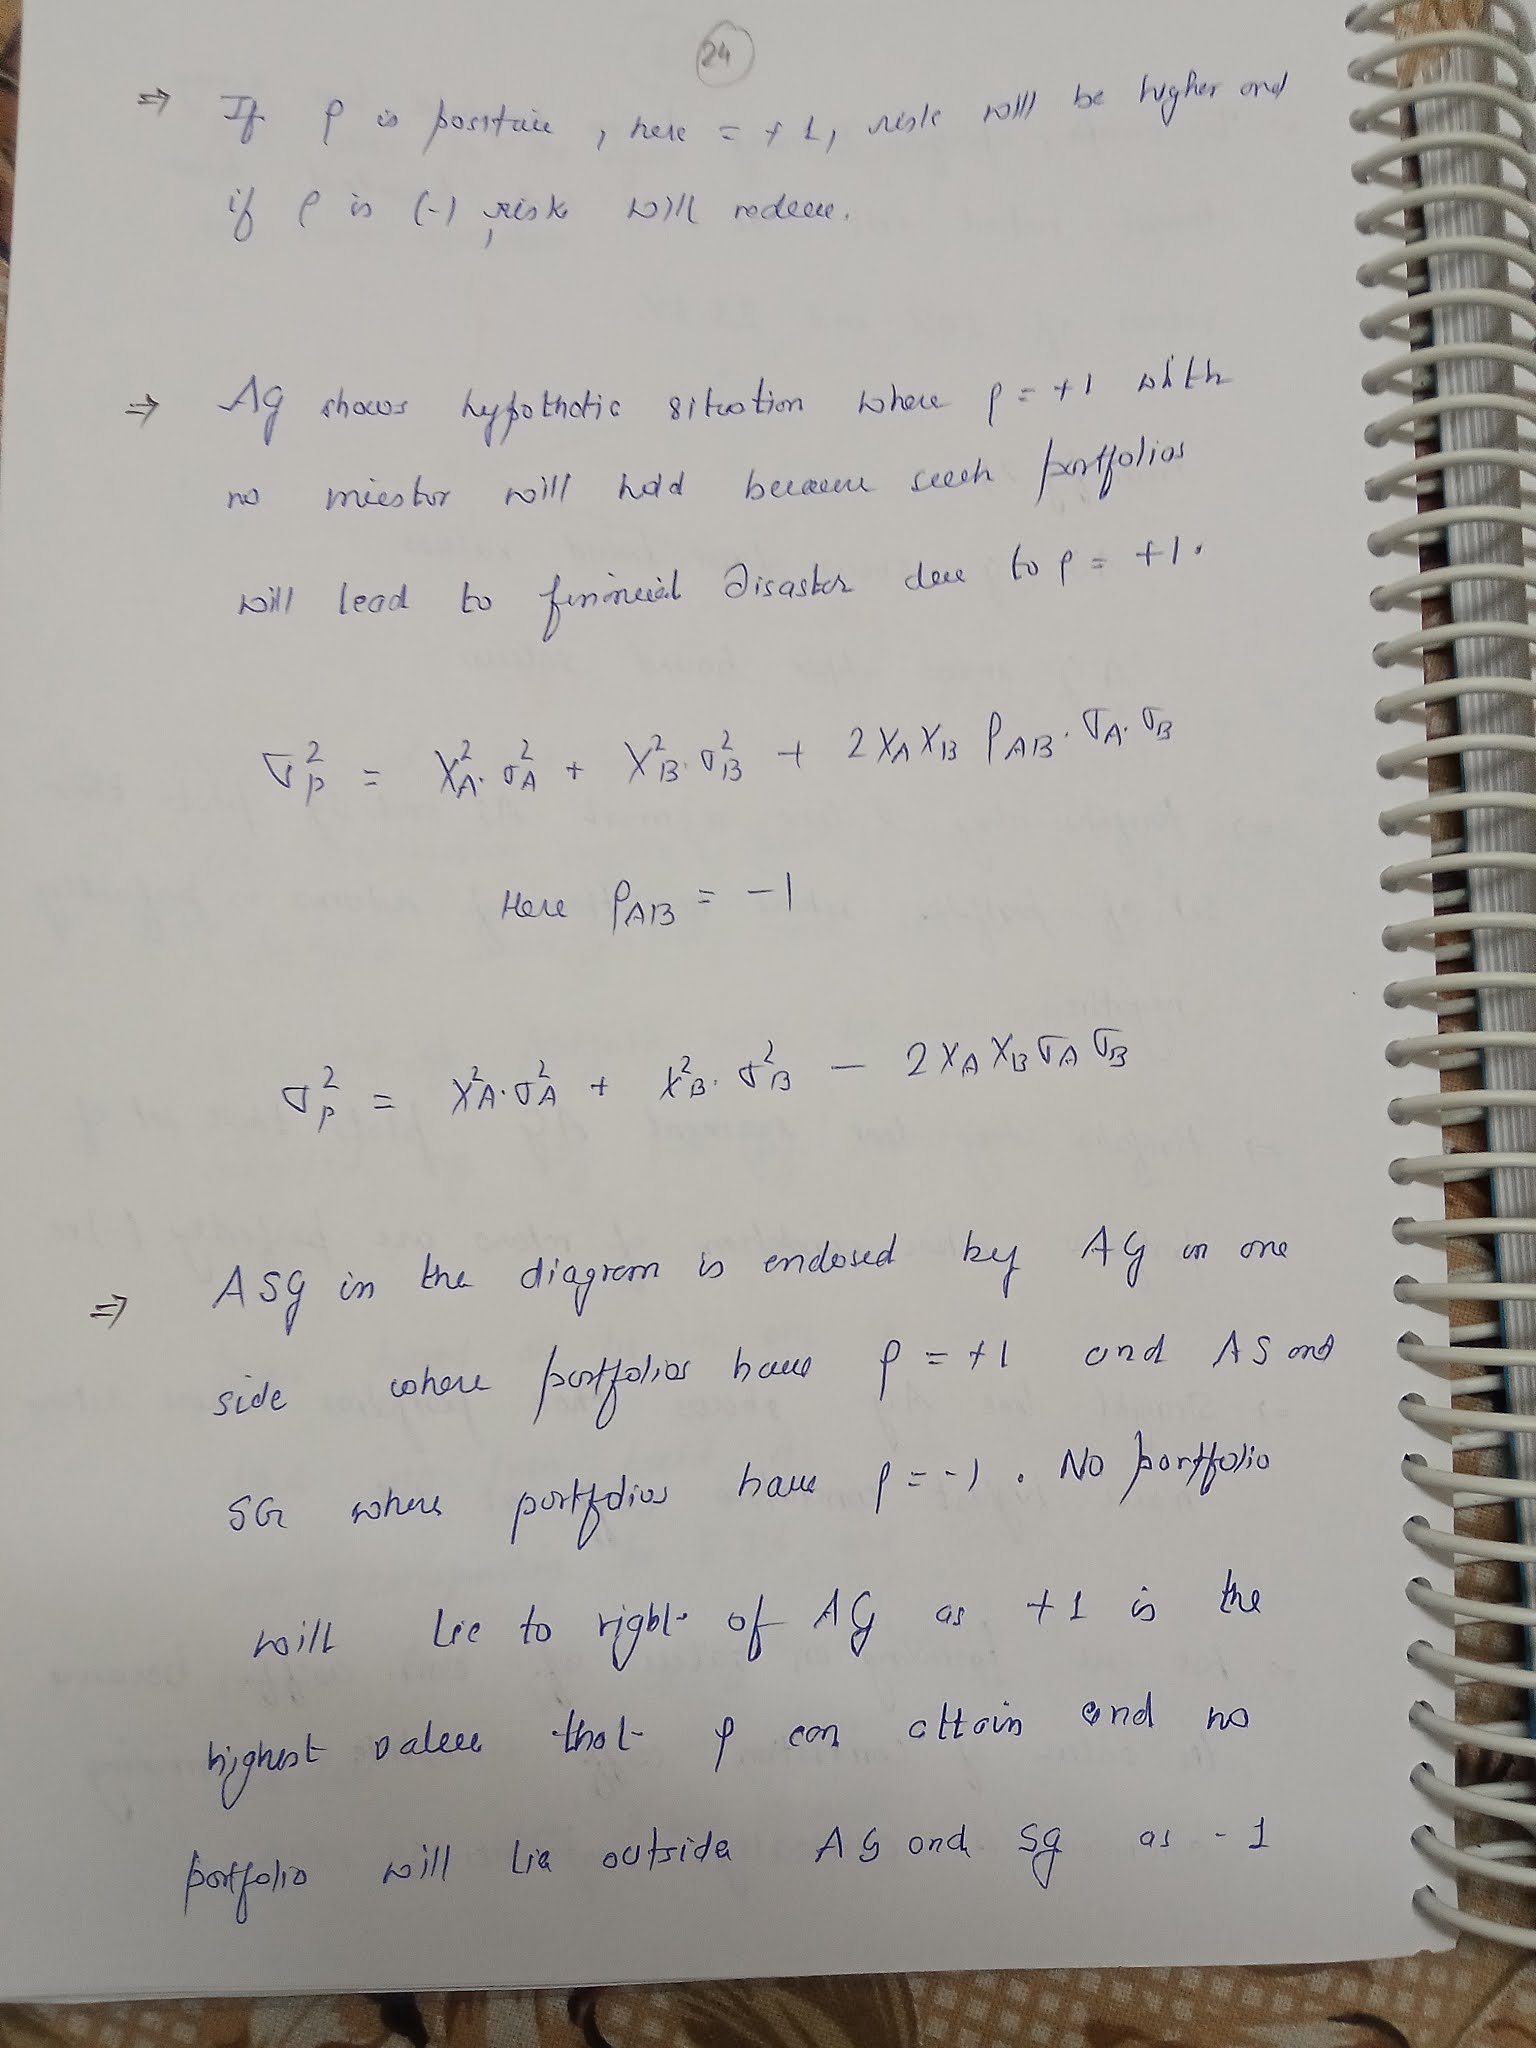 24
⇒ If ρ is positive, here = +1, risk will be higher and
if ρ is (-), risk will reduce.
⇒ AG shows hypothetic situation where ρ = +1 with
no investor will hold because such portfolios
will lead to financial disaster due to ρ = +1.
σ²_P = X²_A · σ²_A + X²_B · σ²_B + 2 X_A X_B ρ_AB · σ_A · σ_B
Here ρ_AB = -1
σ²_P = X²_A · σ²_A + X²_B · σ²_B - 2 X_A X_B σ_A σ_B
⇒ ASG in the diagram is enclosed by AG in one
side where portfolios have ρ = +1 and AS and
SG where portfolios have ρ = -1. No portfolio
will lie to right of AG as +1 is the
highest value that ρ can attain and no
portfolio will lie outside AG and SG as -1